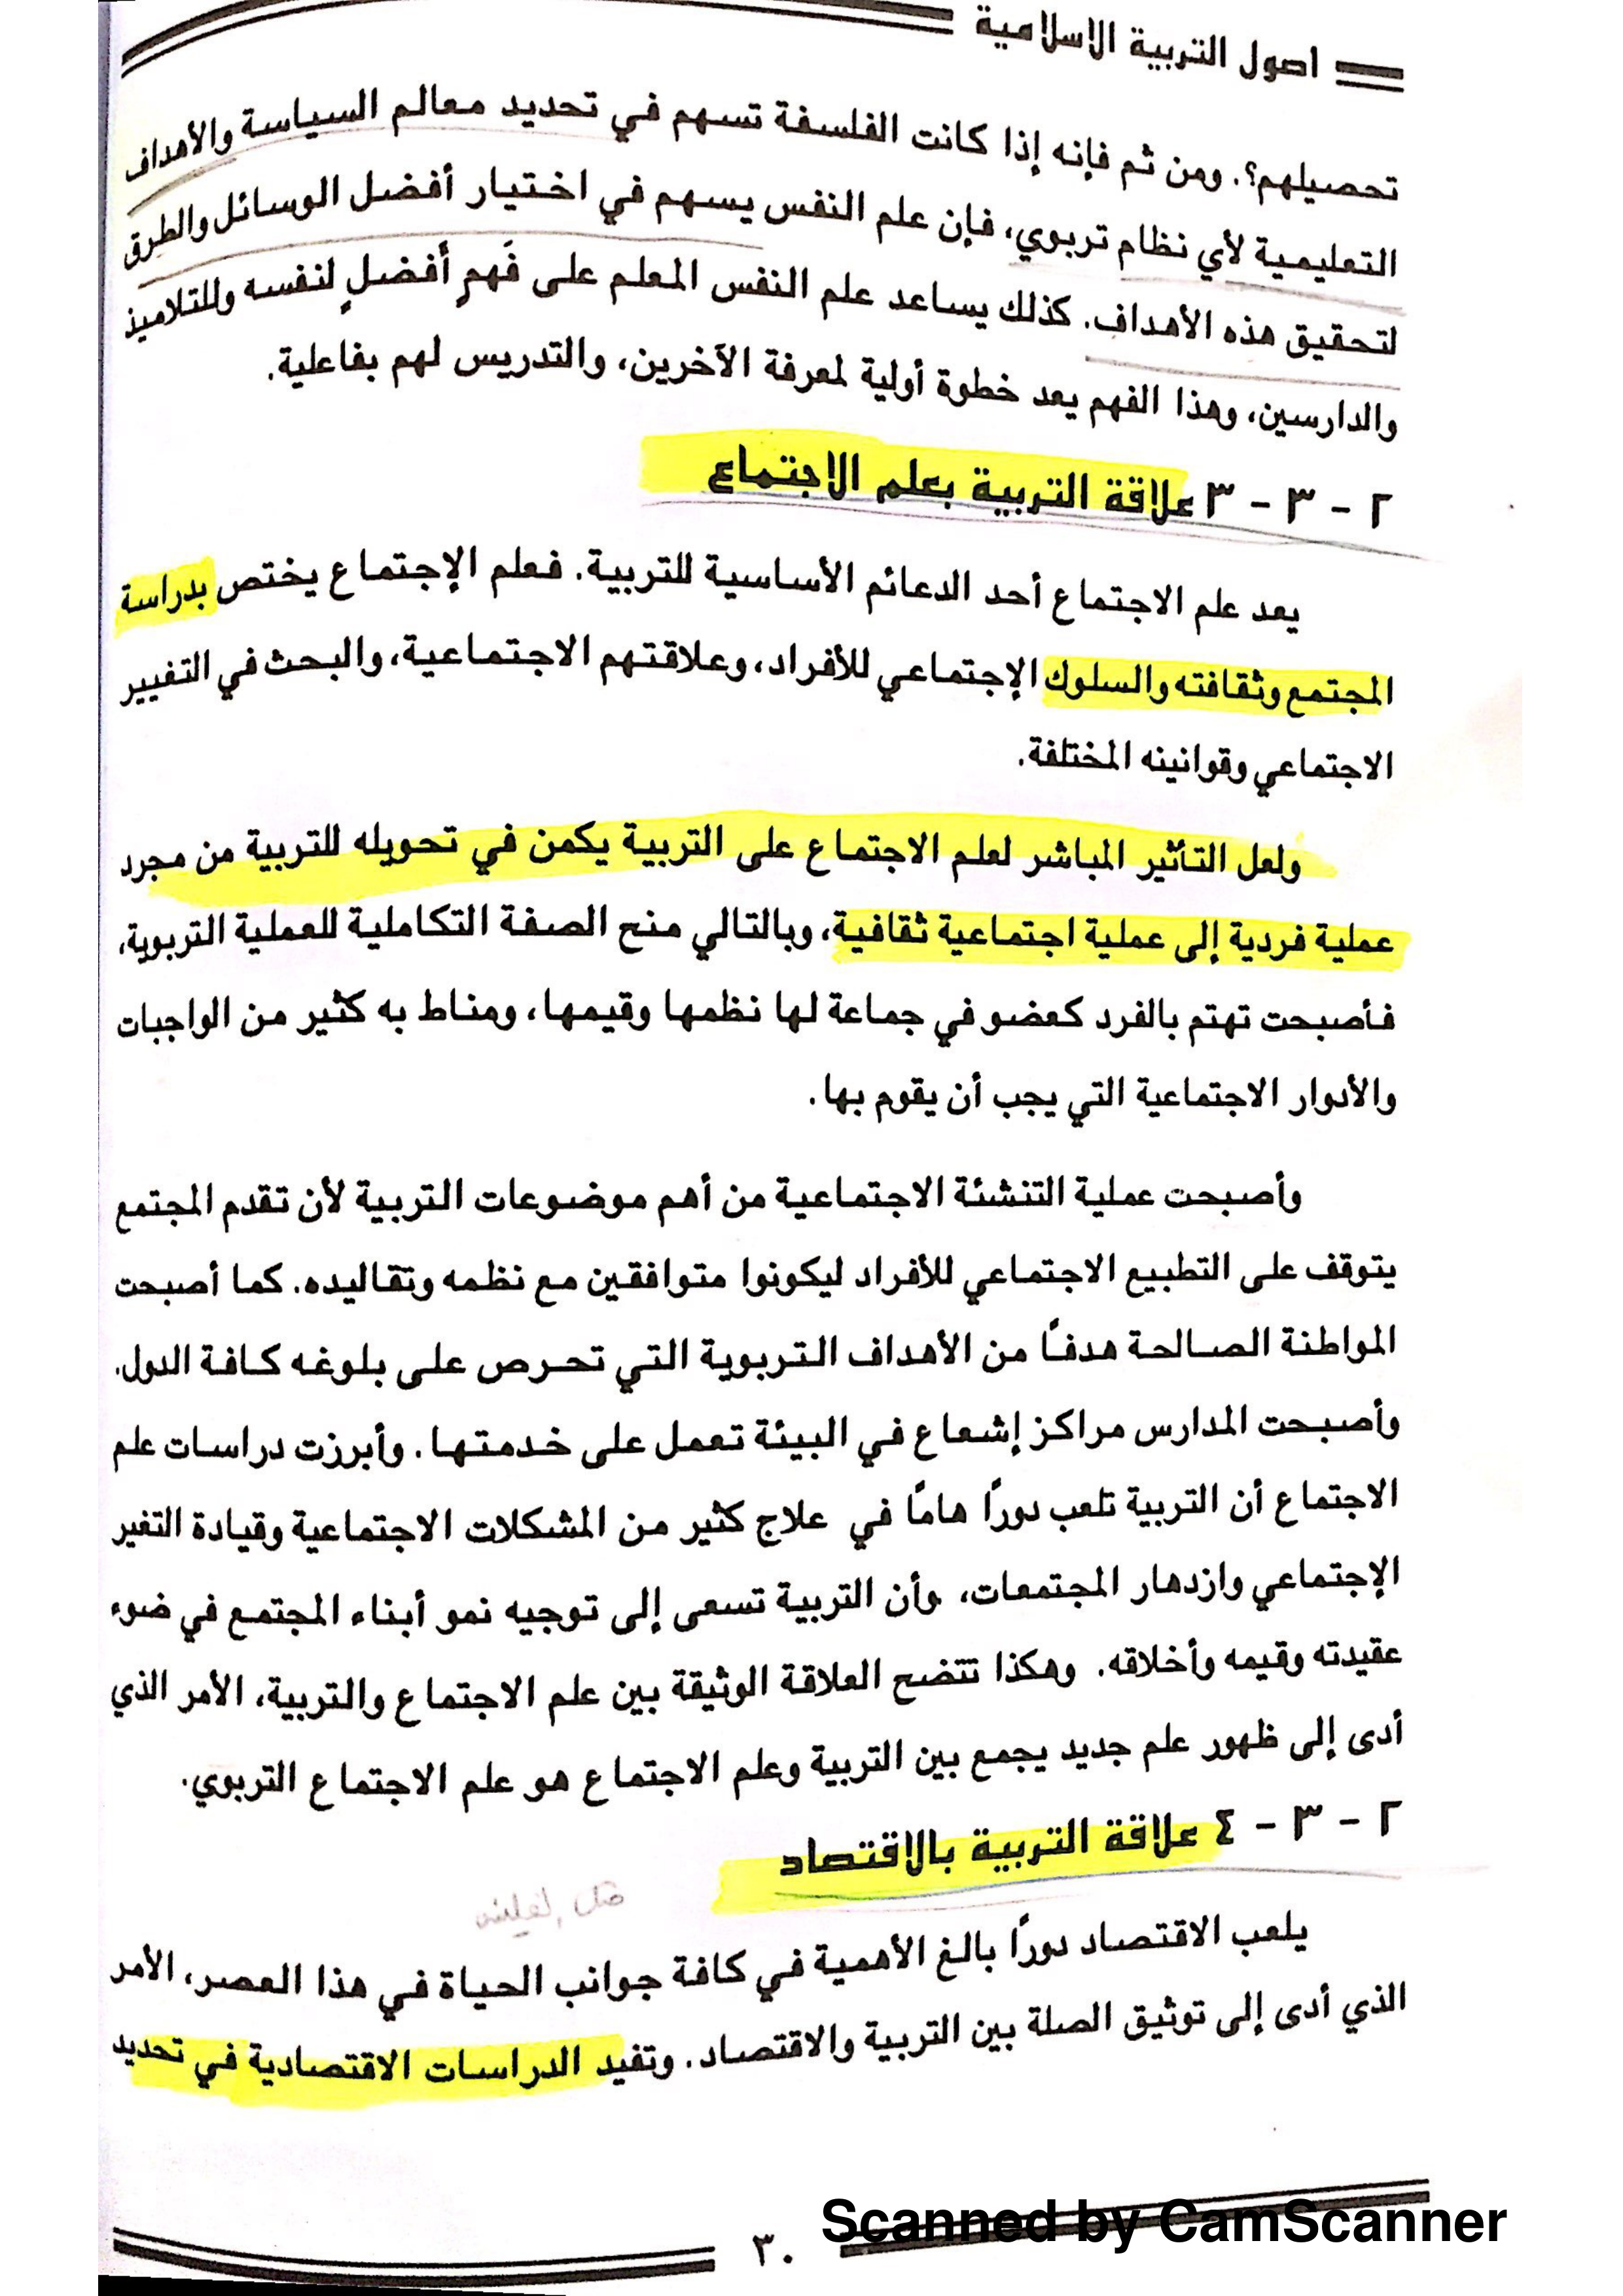 اصول التربية الاسلامية
تحصيلهم؟. ومن ثم فإنه إذا كانت الفلسفة تسهم في تحديد معالم السياسة والأهداف
التعليمية لأي نظام تربوي، فإن علم النفس يسهم في اختيار أفضل الوسائل والطرق
لتحقيق هذه الأهداف. كذلك يساعد علم النفس المعلم على فَهمٍ أفضلٍ لنفسه وللتلاميذ
والدارسين، وهذا الفهم يعد خطوة أولية لمعرفة الآخرين، والتدريس لهم بفاعلية.
٢ - ٣ - ٣ علاقة التربية بعلم الاجتماع
يعد علم الاجتماع أحد الدعائم الأساسية للتربية. فعلم الإجتماع يختص بدراسة
المجتمع وثقافته والسلوك الإجتماعي للأفراد، وعلاقتهم الاجتماعية، والبحث في التغيير
الاجتماعي وقوانينه المختلفة.
ولعل التأثير المباشر لعلم الاجتماع على التربية يكمن في تحويله للتربية من مجرد
عملية فردية إلى عملية اجتماعية ثقافية، وبالتالي منح الصفة التكاملية للعملية التربوية،
فأصبحت تهتم بالفرد كعضو في جماعة لها نظمها وقيمها، ومناط به كثير من الواجبات
والأدوار الاجتماعية التي يجب أن يقوم بها.
وأصبحت عملية التنشئة الاجتماعية من أهم موضوعات التربية لأن تقدم المجتمع
يتوقف على التطبيع الاجتماعي للأفراد ليكونوا متوافقين مع نظمه وتقاليده. كما أصبحت
المواطنة الصالحة هدفًا من الأهداف التربوية التي تحرص على بلوغه كافة الدول.
وأصبحت المدارس مراكز إشعاع في البيئة تعمل على خدمتها. وأبرزت دراسات علم
الاجتماع أن التربية تلعب دورًا هامًا في علاج كثير من المشكلات الاجتماعية وقيادة التغير
الإجتماعي وازدهار المجتمعات، وأن التربية تسعى إلى توجيه نمو أبناء المجتمع في ضوء
عقيدته وقيمه وأخلاقه. وهكذا تتضح العلاقة الوثيقة بين علم الاجتماع والتربية، الأمر الذي
أدى إلى ظهور علم جديد يجمع بين التربية وعلم الاجتماع هو علم الاجتماع التربوي.
٢ - ٣ - ٤ علاقة التربية بالاقتصاد
يلعب الاقتصاد دورًا بالغ الأهمية في كافة جوانب الحياة في هذا العصر، الأمر
الذي أدى إلى توثيق الصلة بين التربية والاقتصاد. وتفيد الدراسات الاقتصادية في تحديد
٣٠
Scanned by CamScanner